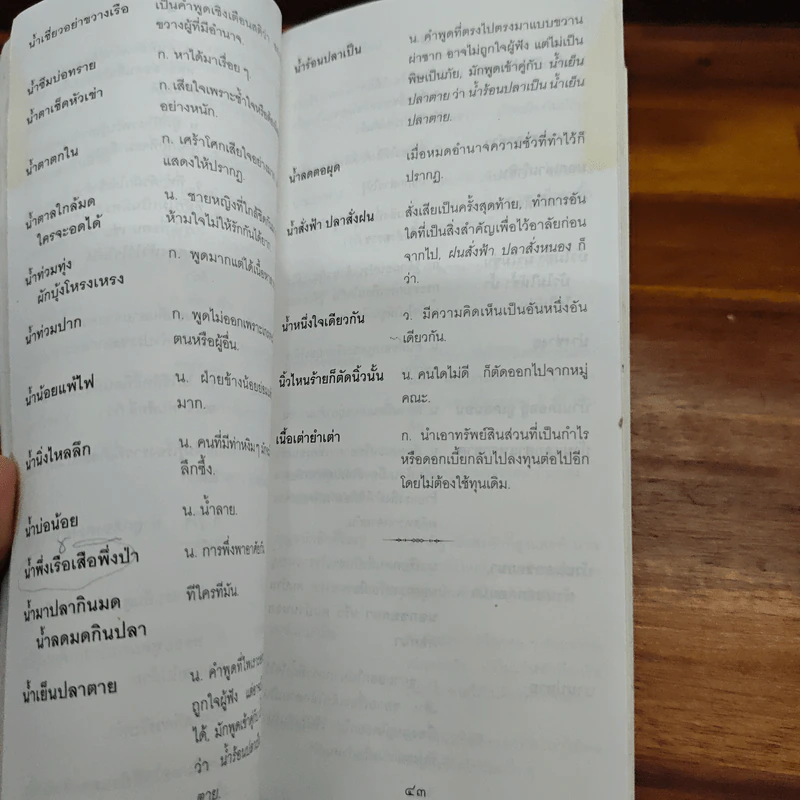 น้ำเชี่ยวอย่าขวางเรือ เป็นคำพูดเชิงเตือนสติว่า
ขวางผู้ที่มีอำนาจ.
น้ำซึมบ่อทราย ก. หาได้มาเรื่อยๆ.
น้ำตาเช็ดหัวเข่า ก. เสียใจเพราะช้ำใจ
อย่างหนัก.
น้ำตาตกใน ก. เศร้าโศกเสียใจอย่าง
แสดงให้ปรากฏ.
น้ำตาลใกล้มด น. ชายหญิงที่ใกล้ชิดกัน
ใครจะอดได้ ห้ามใจไม่ให้รักกันได้ยาก
น้ำท่วมทุ่ง ก. พูดมากแต่ได้เนื้อหา
ผักบุ้งโหรงเหรง
น้ำท่วมปาก ก. พูดไม่ออกเพราะ
ตนหรือผู้อื่น.
น้ำน้อยแพ้ไฟ น. ฝ่ายข้างน้อยย่อม
มาก.
น้ำนิ่งไหลลึก น. คนที่มีท่าหงิมๆ มัก
ลึกซึ้ง.
น้ำบ่อน้อย น. น้ำลาย.
น้ำพึ่งเรือเสือพึ่งป่า น. การพึ่งพาอาศัย
น้ำมาปลากินมด ทีใครทีมัน.
น้ำลดมดกินปลา
น้ำเย็นปลาตาย น. คำพูดที่ไพเราะ
ถูกใจผู้ฟัง
ได้, มักพูดเข้าคู่กับ
ว่า น้ำร้อนปลาเป็น
ตาย.
น้ำร้อนปลาเป็น น. คำพูดที่ตรงไปตรงมาแบบขวาน
ผ่าซาก อาจไม่ถูกใจผู้ฟัง แต่ไม่เป็น
พิษเป็นภัย, มักพูดเข้าคู่กับ น้ำเย็น
ปลาตาย ว่า น้ำร้อนปลาเป็น น้ำเย็น
ปลาตาย.
น้ำลดตอผุด เมื่อหมดอำนาจความชั่วที่ทำไว้ก็
ปรากฏ.
น้ำสั่งฟ้า ปลาสั่งฝน สั่งเสียเป็นครั้งสุดท้าย, ทำการอัน
ใดที่เป็นสิ่งสำคัญเพื่อไว้อาลัยก่อน
จากไป, ฝนสั่งฟ้า ปลาสั่งหนอง ก็
ว่า.
น้ำหนึ่งใจเดียวกัน ว. มีความคิดเห็นเป็นอันหนึ่งอัน
เดียวกัน.
นิ้วไหนร้ายก็ตัดนิ้วนั้น น. คนใดไม่ดี ก็ตัดออกไปจากหมู่
คณะ.
เนื้อเต่ายำเต่า ก. นำเอาทรัพย์สินส่วนที่เป็นกำไร
หรือดอกเบี้ยกลับไปลงทุนต่อไปอีก
โดยไม่ต้องใช้ทุนเดิม.
๔๓